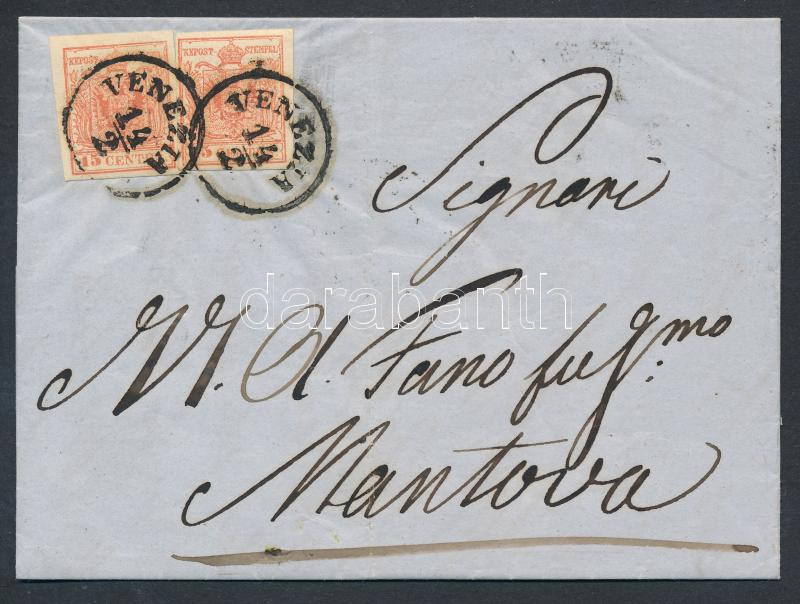 KKPOST- KKPOST-STEMPEL
15 CENT 5
VENEZIA VENEZIA
14/2 14/2
Signori
darabanth
M. A. Fano fu Gmo
Mantova